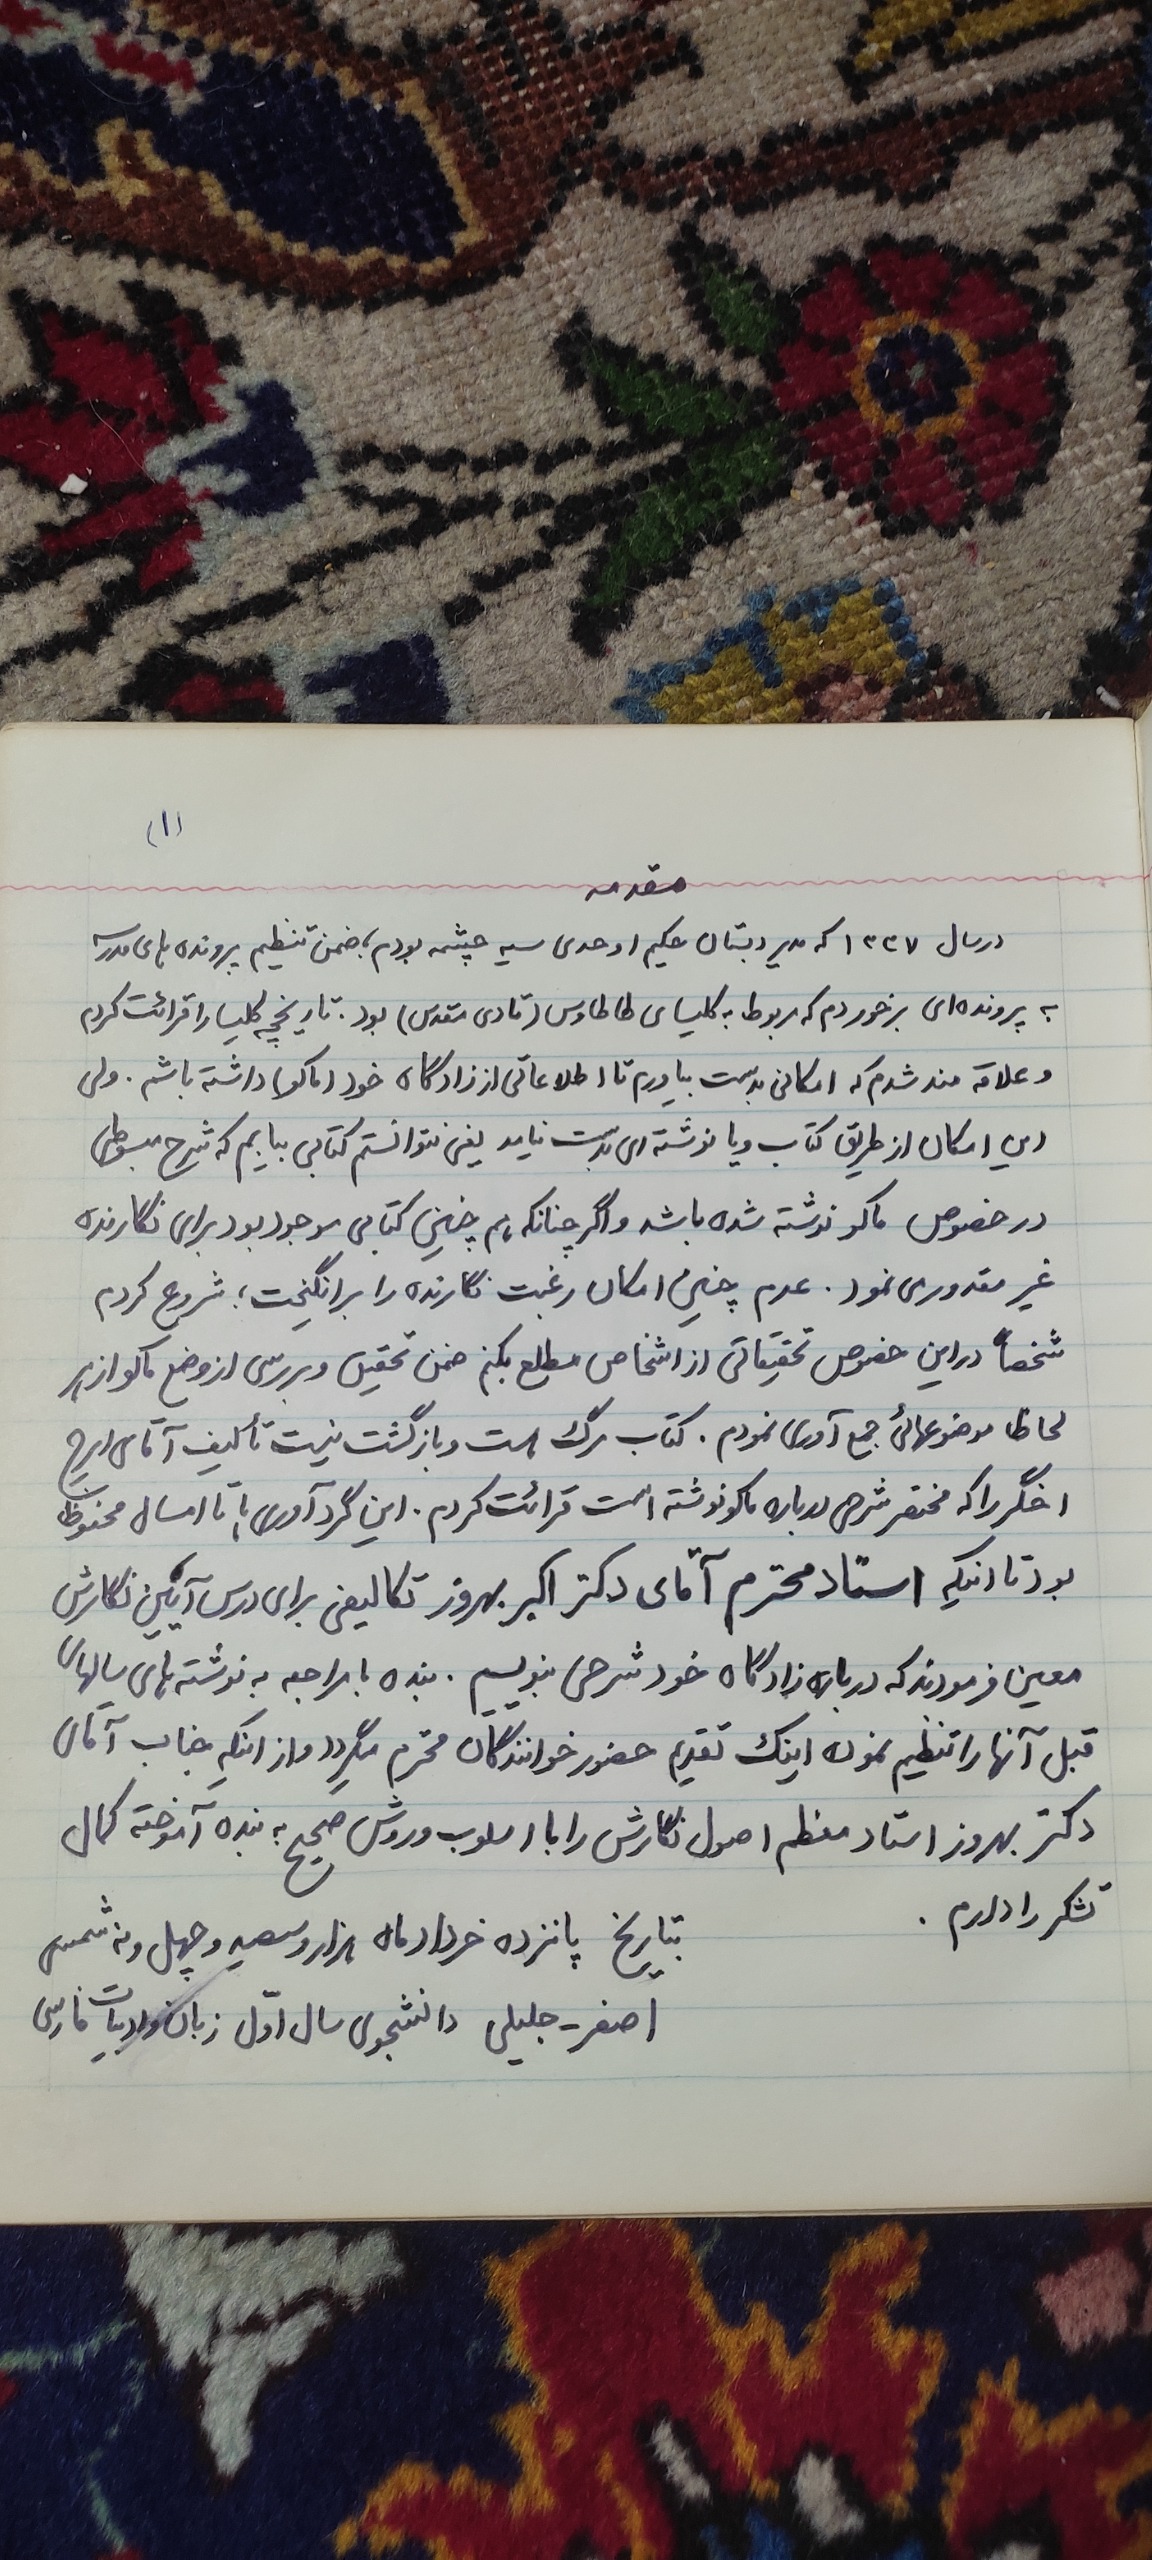 (۱)
مقدمه
در سال ۱۳۳۷ که مدیر دبستان حکیم اوحدی سیه چشمه بودم، ضمن تنظیم پرونده های مدرسه
به پرونده‌ای برخوردم که مربوط به کلیسای طاطاوس (تادی مقدس) بود. تاریخچه کلیسا را قرائت کردم
و علاقه مند شدم که امکانی بدست بیاورم تا اطلاعاتی از زادگاه خود (ماکو) داشته باشم. ولی
این امکان از طریق کتاب و یا نوشته ای بدست نیامد یعنی نتوانستم کتابی بیابم که شرح مبسوطی
در خصوص ماکو نوشته شده باشد و اگر چنانکه هم چنین کتابی موجود بود برای نگارنده
غیر مقدور می نمود. عدم چنین امکان رغبت نگارنده را برانگیخت؛ شروع کردم
شخصاً در این خصوص تحقیقاتی از اشخاص مطلع بکنم ضمن تحقیق و بررسی از وضع ماکو از هر
لحاظ موضوعهائی جمع آوری نمودم. کتاب مرگ هست و بازگشت نیست تألیف آقای ایرج
اخگر را که مختصر شرحی درباره ماکو نوشته است قرائت کردم. این گردآوری ها تا امسال محفوظ
بود تا اینکه استاد محترم آقای دکتر اکبر بهروز تکالیفی برای درس آئین نگارش
معین فرمودند که درباره زادگاه خود شرحی بنویسیم. بنده با مراجعه به نوشته های سالهای
قبل آنها را تنظیم نموده اینک تقدیم حضور خوانندگان محترم میگردد و از اینکه جناب آقای
دکتر بهروز استاد معظم اصول نگارش را با اسلوب و روش صحیح به بنده آموخته کمال
تشکر را دارم.
بتاریخ پانزده خرداد ماه هزار و سیصد و چهل و نه شمسی
اصغر - جلیلی دانشجوی سال اوّل زبان و ادبیات فارسی